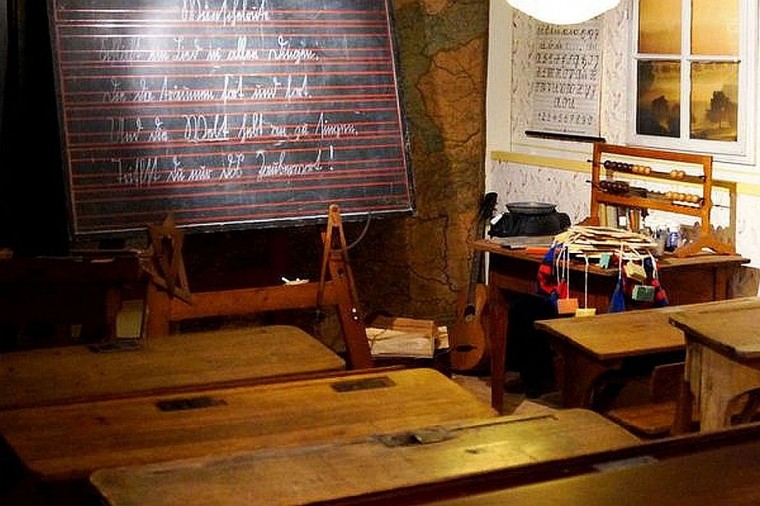 Wünschelrute
Schläft ein Lied in allen Dingen,
die da träumen fort und fort.
Und die Welt hebt an zu singen,
Triffst du nur das Zauberwort!